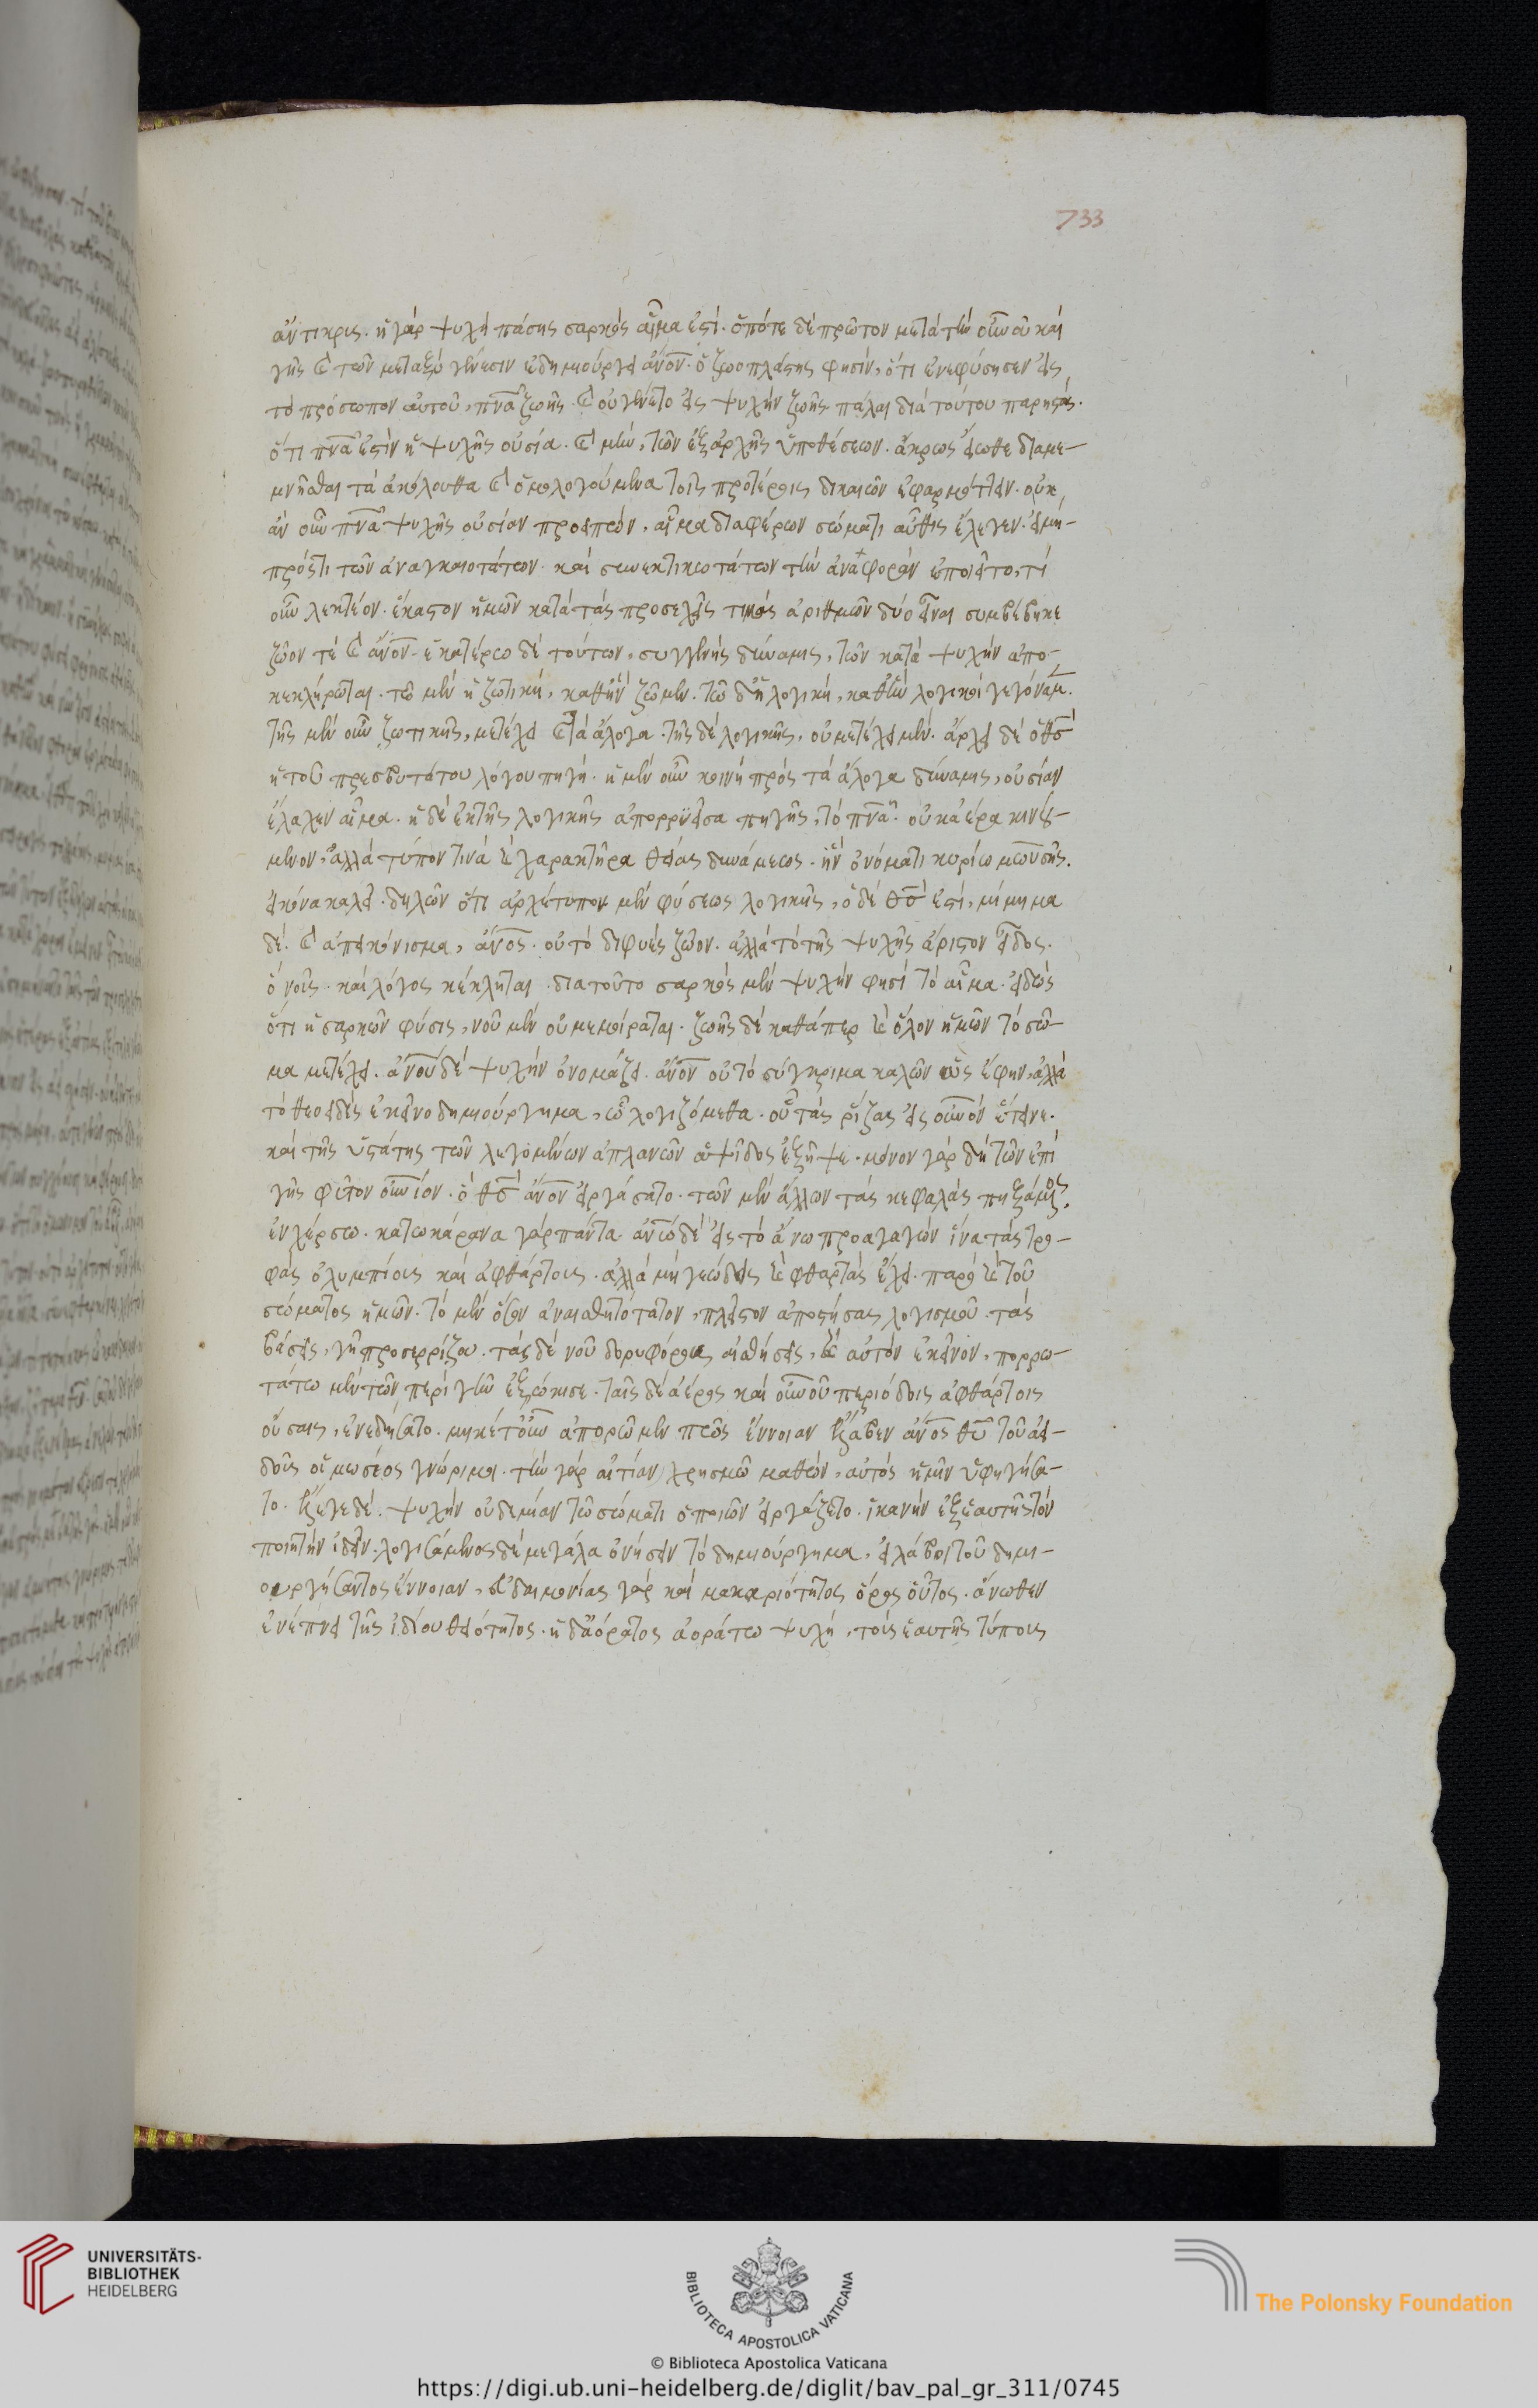 733
ἄντικρις. ἡ γὰρ ψυχὴ πάσης σαρκὸς αἷμα ἐστί. ὁπότε δὲ πρῶτον μετὰ τὴν οὐνοῦ καὶ
γῆς καὶ τῶν μεταξὺ γένεσιν ἐδημιούργει ἄνον. ὁ ζωοπλάστης φησὶν, ὅτι ἐνεφύσησεν εἰς
τὸ πρόσωπον αὐτοῦ, πνᾶ ζωῆς. καὶ ἐγένετο εἰς ψυχὴν ζωῆς πάλαι διὰ τούτου παρηστάς.
ὅτι πνᾶ ἐστὶν ἡ ψυχῆς οὐσία. καὶ μὴν, τῶν ἐξ ἀρχῆς ὑποθέσεων. ἄκρως εἴωθε διαμε-
μνῆσθαι τὰ ἀκόλουθα καὶ ὁμολογούμενα τοῖς προτέροις δικαιῶν ἐφαρμόττειν. οὐκ
ἂν οὖν πνᾶ ψυχῆς οὐσίαν προειπὼν, αἷμα διαφέρων σώματι αὖθις ἔλεγεν. εἰ μὴ-
πρός τι τῶν ἀναγκαιοτάτων καὶ συνεκτικωτάτων τὴν ἀναφορὰν ἐποιεῖτο, τί
οὖν λεκτέον. ἕκαστον ἡμῶν κατὰ τὰς προσεχεῖς τομὰς ἀριθμῶν δύο εἶναι συμβέβηκε
ζῶον τὲ καὶ ἄνον. ἑκατέρω δὲ τούτων, συγγενὴς δύναμις, τῶν κατὰ ψυχὴν ἀπο-
κεκλήρωται. τῶ μὲν ἡ ζωτικὴ, καθ' ἣν ζῶμεν. τῶ δ' ἡ λογικὴ, καθ' ἣν λογικοὶ γεγόναμ.
τῆς μὲν οὖν ζωτικῆς, μετέχει καὶ τὰ ἄλογα. τῆς δὲ λογικῆς, οὐ μετέχει μὲν. ἄρχει δὲ ὁ θς
ἡ τοῦ πρεσβυτάτου λόγου πηγή. ἡ μὲν οὖν κοινὴ πρὸς τὰ ἄλογα δύναμις, οὐσίαν
ἔλαχεν αἷμα. ἡ δὲ ἐκ τῆς λογικῆς ἀπορρυεῖσα πηγῆς, τὸ πνᾶ. οὐκ ἀέρα κινού-
μενον, ἀλλὰ τύπον τινὰ καὶ χαρακτῆρα θείας δυνάμεως. ἣν ὀνόματι κυρίω μωυσῆς.
εἰκόνα καλεῖ. δηλῶν ὅτι ἀρχέτυπον μὲν φύσεως λογικῆς, ὁ δὲ θς ἐστὶ, μίμημα
δὲ. καὶ ἀπεικόνισμα, ἄνος. οὐ τὸ διφυὲς ζῶον. ἀλλὰ τὸ τῆς ψυχῆς ἄριστον εἶδος.
ὁ νοῦς. καὶ λόγος κέκληται. διατοῦτο σαρκὸς μὲν ψυχὴν φησὶ τὸ αἷμα. εἰδὼς
ὅτι ἡ σαρκῶν φύσις, νοῦ μὲν οὐ μεμοίραται. ζωῆς δὲ καθάπερ καὶ ὅλον ἡμῶν τὸ σῶ-
μα μετέχει. ἀνου δὲ ψυχὴν ὀνομάζει. ἄνον οὐ τὸ σύγκριμα καλῶν ὡς ἔφην, ἀλλὰ
τὸ θεοειδὲς ἐκεῖνο δημιούργημα, ὧ λογιζόμεθα. οὗ τὰς ῥίζας εἰς οὐνὸν ἔτεινε.
καὶ τῆς ὑστάτης τῶν λεγομένων ἀπλανῶν ἁψῖδος ἐξῆψε. μόνον γὰρ δὴ τῶν ἐπὶ
γῆς φυτὸν οὐνιον. ὁ θς ἄνον εἰργάσατο. τῶν μὲν ἄλλων τὰς κεφαλὰς πηξάμενος
ἐν χέρσω. κατωκάρανα γὰρ πάντα. ἄνον δὲ εἰς τὸ ἄνω προαγαγὼν ἵνα τὰς τρο-
φὰς ὀλυμπίοις καὶ ἀφθάρτοις. ἀλλὰ μὴ γεώδεις καὶ φθαρτὰς ἔχει. παρὸ καὶ τοῦ
σώματος ἡμῶν. τὸ μὲν ὅσον ἀναισθητότατον, πλεῖστον ἀποστήσας λογισμοῦ. τὰς
βάσεις, γῆ προσερρίζου. τὰς δὲ νοῦ δορυφόρους αἰσθήσεις, καὶ αὐτὸν ἐκεῖνον, πορρω-
τάτω μὲν τῶν περὶ γῆν ἐξώκισε. ταῖς δὲ ἀέρος καὶ οὐνοῦ περιόδοις ἀφθάρτοις
οὔσαις, ἐνεδήσατο. μηκέτ' οὖν ἀπορῶμεν πῶς ἔννοιαν ἔλαβεν ἄνος θυ τοῦ ἀει-
δοῦς οἱ μωσέος γνώριμοι. τὴν γὰρ αἰτίαν χρησμῶ μαθὼν, αὐτὸς ἡμῖν ὑφηγήσα-
το. ἔλεγε δὲ. ψυχὴν οὐδεμίαν τῶ σώματι ὁ ποιῶν εἰργάζετο. ἱκανὴν ἐξ ἑαυτῆς τὸν
ποιητὴν ἰδεῖν. λογισάμενος δὲ μεγάλα ὀνήσειν τὸ δημιούργημα, εἰ λάβοι τοῦ δημι-
ουργήσαντος ἔννοιαν, εὐδαιμονίας γὰρ καὶ μακαριότητος ὅρος οὗτος. ἄνωθεν
ἐνέπνει τῆς ἰδίου θειότητος. ἡ δ' ἀόρατος ἀοράτω ψυχὴ, τοὺς ἑαυτῆς τύπους
UNIVERSITÄTS-
BIBLIOTHEK
HEIDELBERG
BIBLIOTECA APOSTOLICA VATICANA
The Polonsky Foundation
© Biblioteca Apostolica Vaticana
https://digi.ub.uni-heidelberg.de/diglit/bav_pal_gr_311/0745